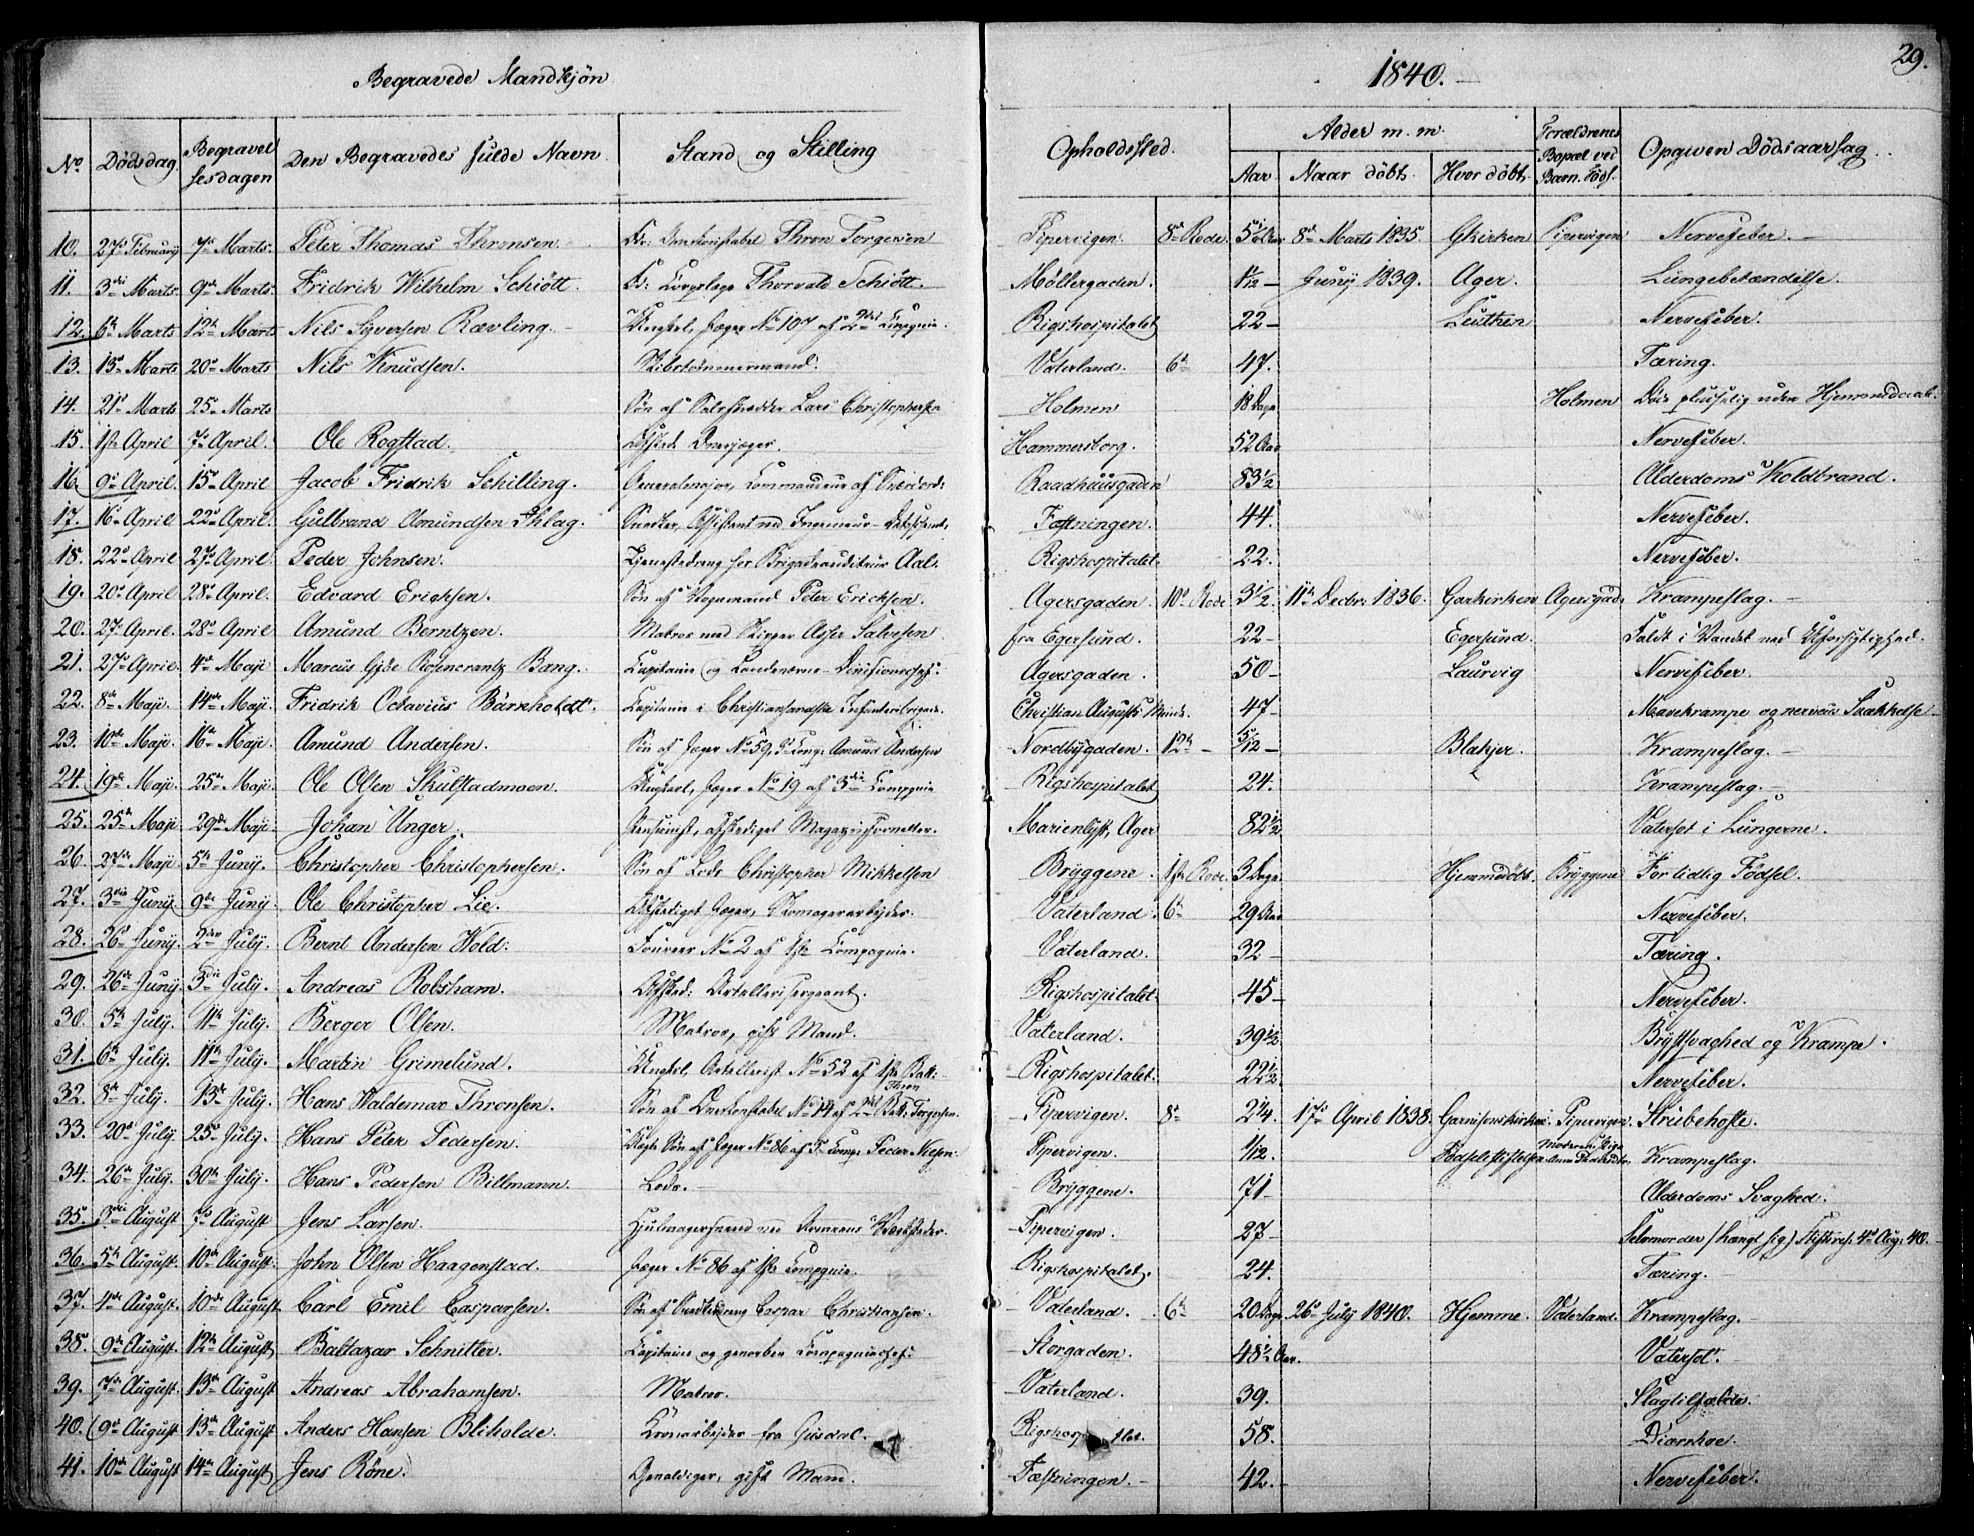 Begravede Mandkjøn
1840.
29.
No Dødsdag Begravel sesdagen Den Begravedes fulde Navn Stand og Stilling Opholdssted. Alder m. m. Aar Naar døbt. Hvor døbt. Forældrenes Bopæl ved Barn. Føds. Opgiven Dødsaarsag
10. 27de February 7de Marts. Peter Thomas Thronsen. Thron Torgersen Pipervigen. 8de Rode 8de Marts 1835. Gkirken Pipervigen Nervefeber.
11. 3die Marts 9de Marts. Fridrik Wilhelm Schiøtt. Thorvald Schiøtt. Møllergaden. Juny 1839. Ager. Lungebetændelse.
12. 6te Marts 12te Marts Nils Syversen Rævling. Jæger No 107 af 2det Compagnie. Rigshospitalet 22 Leuthen Nervefeber.
13. 13de Marts 20de Marts Nils Knudsen. Skibstømmermand. Vaterland. 6te 47. Tæring.
14. 21de Marts 25de Marts Søn af Lars Christophersen Holmen 18 Dage Holmen Døde pludselig uden Hjemmedaab.
15. 1ste April 7de April. Ole Rogstad. Hammersborg. 52 Aar Nervefeber.
16. 9de April. 15de April Jacob Fridrik Schilling. Generalmajor, Commandeur af Sværdord: Raadhuusgaden 83½ Alderdoms Koldbrand.
17. 16de April 22de April. Gulbrand Amundsen Fæstningen. 44. Nervefeber.
18. 22de April 27de April. Peder Johnsen. Tjenestedreng hos Brigadeauditeur Aal. Rigshospitalet. 22. Nervefeber.
19. 20de April 28de April. Edvard Erichsen. Søn af Vognmand Peter Ericksen. Agersgaden 10de Rode 3½. 11te Decbr. 1836. Garkirken Agersgad. Krampeslag.
20. 27de April. 28de April Amund Berntzen. Matros med Skipper Asser Salvesen fra Egersund. 22 Egersund. Faldt i Vandet ved Uforsigtighed.
21. 27de April. 4de Maje Marcus Gjøe Rosencrantz Bang. Capitaine og Landeværns-Divisionschef. Agersgaden. 50 Laurvig Nervefeber.
22. 8de Maje. 14de Maje. Fridrik Octavius Bärnholdt. Capitaine i Christiansandske Infanteribrigade. Christian Augusts Minde. 47 Mavekrampe og nervøs Svækkelse
23. 10de Maje. 16de Maje. Amund Andersen. Søn af Jæger No 59, Amund Andersen Nordbygaden. 12te 5/12 Blakjer. Krampeslag.
24. 19de Maje. 25de Maje. Ole Olsen Skulstadmoen. Jæger No 19 af 3die Compagnie Rigshospitalet 24. Krampeslag.
25. 25de Maje 29de Maje. Johan Unger. Pensionist, afskediget Magazinforvalter. Marienlyst, Ager 82½ Vatersot i Lungerne.
26. 27de Maje 5te Juny. Christopher Christophersen. Søn af Lods Christopher Mikkelsen Bryggene. 1ste Rode 3 Dage Hjemmedøbt. Bryggene For tidlig Fødsel.
27. 3die Juny 9de Juny. Ole Christopher Lie. Afskediget Jæger, Skomagerarbejder. Vaterland. 6te 29 Aar Nervefeber.
28. 26de Juny. 2den July. Bernt Andersen Wold. Fourer No 2 af 1ste Compagnie. Vaterland. 32 Tæring.
29. 26de Juny 3die July. Andreas Robsham. Afsked: Artillerisergeant. Rigshospitalet 45 Nervefeber.
30. 5te July. 11te July. Berger Olsen. Matros, gift Mand. Vaterland. 39½ Brystsvaghed og Krampe.
31. 6te July. 11te July. Martin Grimelund. Artillerist No 52 af 1ste Batt. Rigshospitalet. 22½ Nervefeber.
32. 8de July. 13de July. Hans Waldemar Thronsen. Søn af Overkonstabel No 14 af 2det Batt. Thron Torgersen. Pipervigen. 8de 2¼. 17de April 1838. Garnisonskirken. Pipervigen. Strubehoste.
33. 20de July. 25de July. Hans Peter Pedersen. Søn af Jæger No 86 af 5te Comp: Peder Nielsen. Pipervigen. 1/12. Fødselsstiftelsen Krampeslag.
34. 26de July. 30te July. Hans Pedersen Billmann. Lods. Bryggene. 71 Alderdoms Svaghed.
35. 3die August 7de August Jens Larsen. Hjulmagersvend ved Armeens Værksteder. Pipervigen. 27 Selvmorder (hængt sig) Stiftsres. 4de Aug. 40.
36. 5te August. 10de August. John Olsen Haagenstad. Jæger No 86 af 1ste Compagnie. Rigshospitalet. 24. Tæring.
37. 4de August. 10de August. Carl Emil Casparsen. Søn af Caspar Christiansen. Vaterland. 6te 20 Dage 26de July 1840. Hjemme. Vaterland. Krampeslag.
38. 9de August. 12te August Baltazar Schnitter. Capitaine og geworben Compagniechef. Storgaden. 48½ Aar. Vatersot.
39. 7de August. 13de August Andreas Abrahamsen. Matros. Vaterland. 39. Slagtilfælde.
40. 9de August 13de August Anders Hansen Bliholde. fra Gusdal. Rigshospitalet. 58. Diarrhoe.
41. 10de August 14de August Jens Röne. Gevaldiger, gift Mand. Fæstningen. 42. Nervefeber.